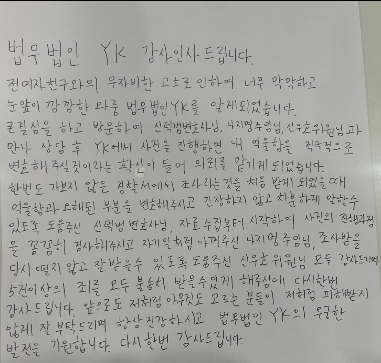 법무법인 YK 감사인사드립니다.
전여자친구와의 무자비한 고소로 인하여 너무 막막하고
눈앞이 깜깜한 와중 법무법인YK를 알게되었습니다.
큰결심을 하고 방문하여 신덕범변호사님, 나지명주임님, 신우호위원님과
만나 상담 후 YK에서 사건을 진행하면 내 억울함을 적극적으로
변호해 주실것이라는 확신이 들어 의뢰를 맡기게 되었습니다.
한번도 가보지 않은 경찰서에서 조사라는것을 처음 받게 되었을때
억울함과 오해된 부분을 변호해주시고 긴장하지 않고 차분하게 말할수
있도록 도움주신 신덕범 변호사님, 자료수집부터시작하여 사건의 진행과정
을 꼼꼼히 검사해주시고 자기일처럼 아껴주신 나지명 주임님, 조사받을
당시 떨지않고 잘 받을수 있도록 도움주신 신우호 위원님 모두 감사드리며
5건이상의 죄목 모두 불송치 받을수있게 해주심에 다시한번
감사드립니다. 앞으로도 저희처럼 아무것도 모르는 분들이 저희처럼 피해받지
않게 잘 부탁드리며 항상건강하시고 법무법인 YK의 무궁한
발전을 기원합니다. 다시한번 감사드립니다.